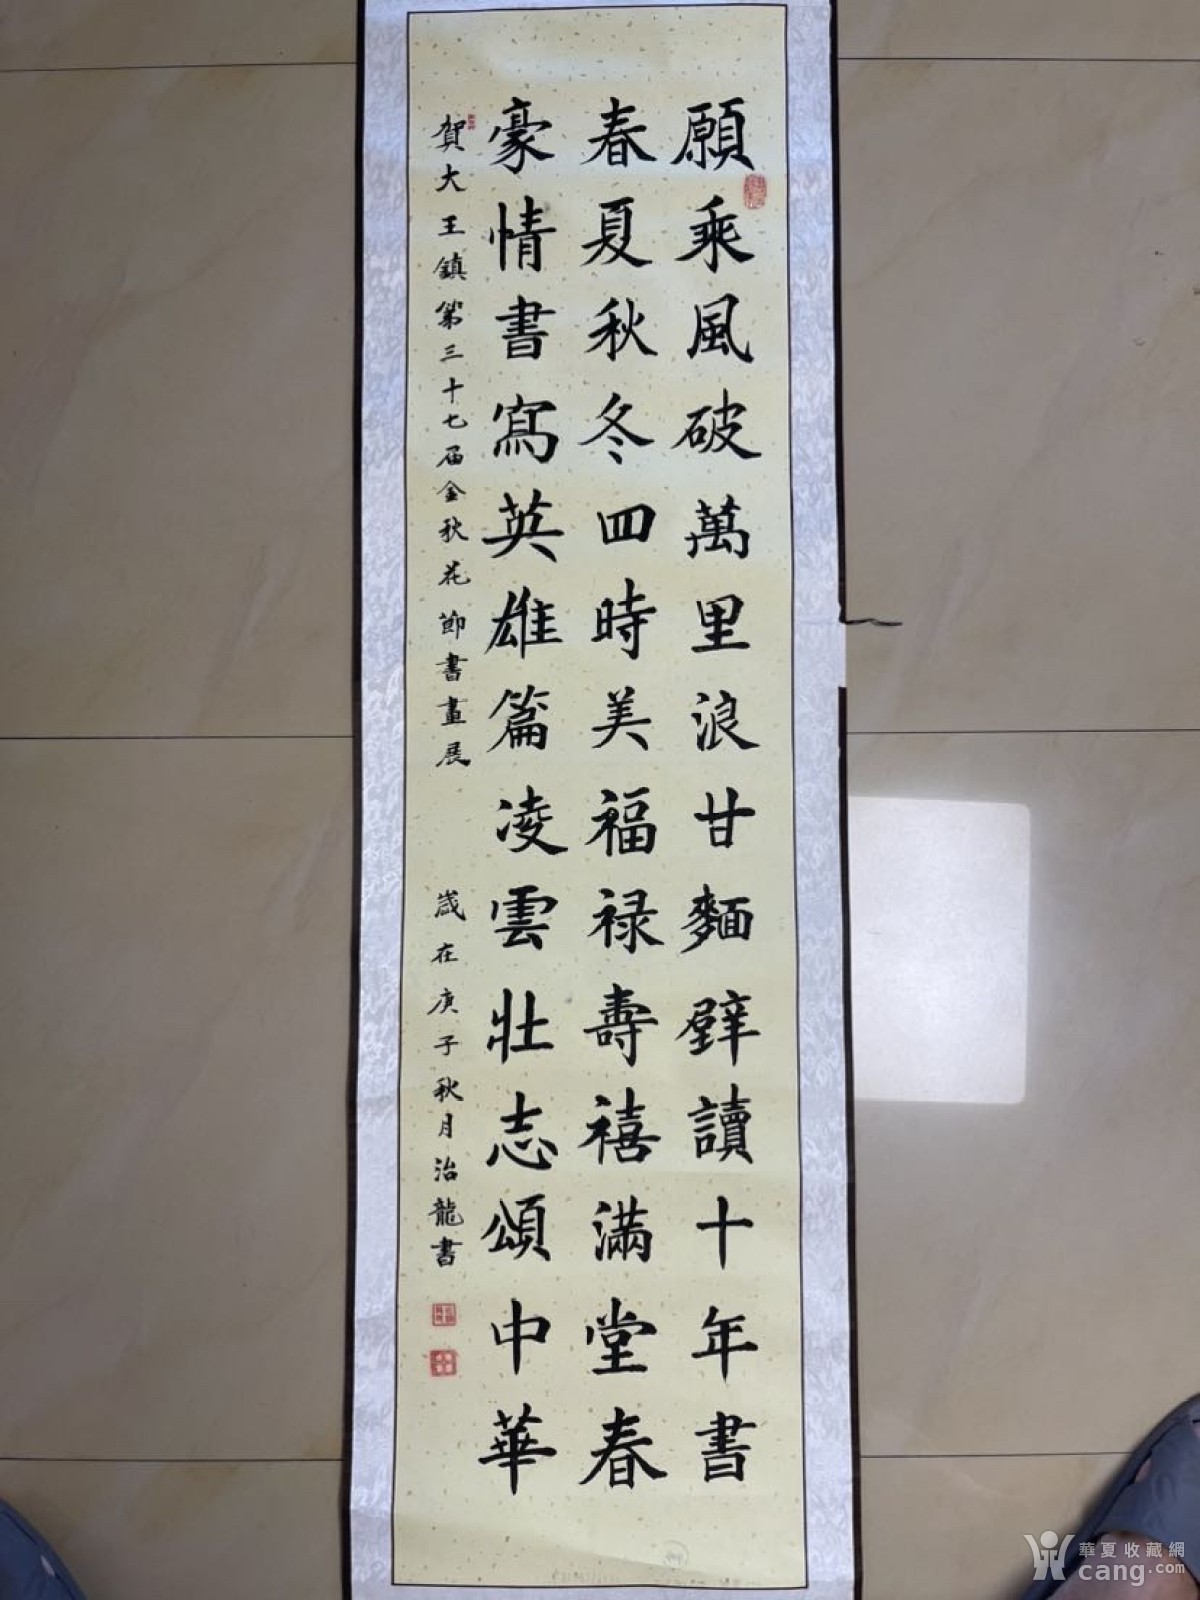 願乘風破萬里浪甘麵壁讀十年書
春夏秋冬四時美福禄壽禧滿堂春
豪情書寫英雄篇凌雲壯志頌中華
賀大王鎮第三十七届金秋花節書畫展
歲在庚子秋月治龍書
華夏收藏網
cang.com